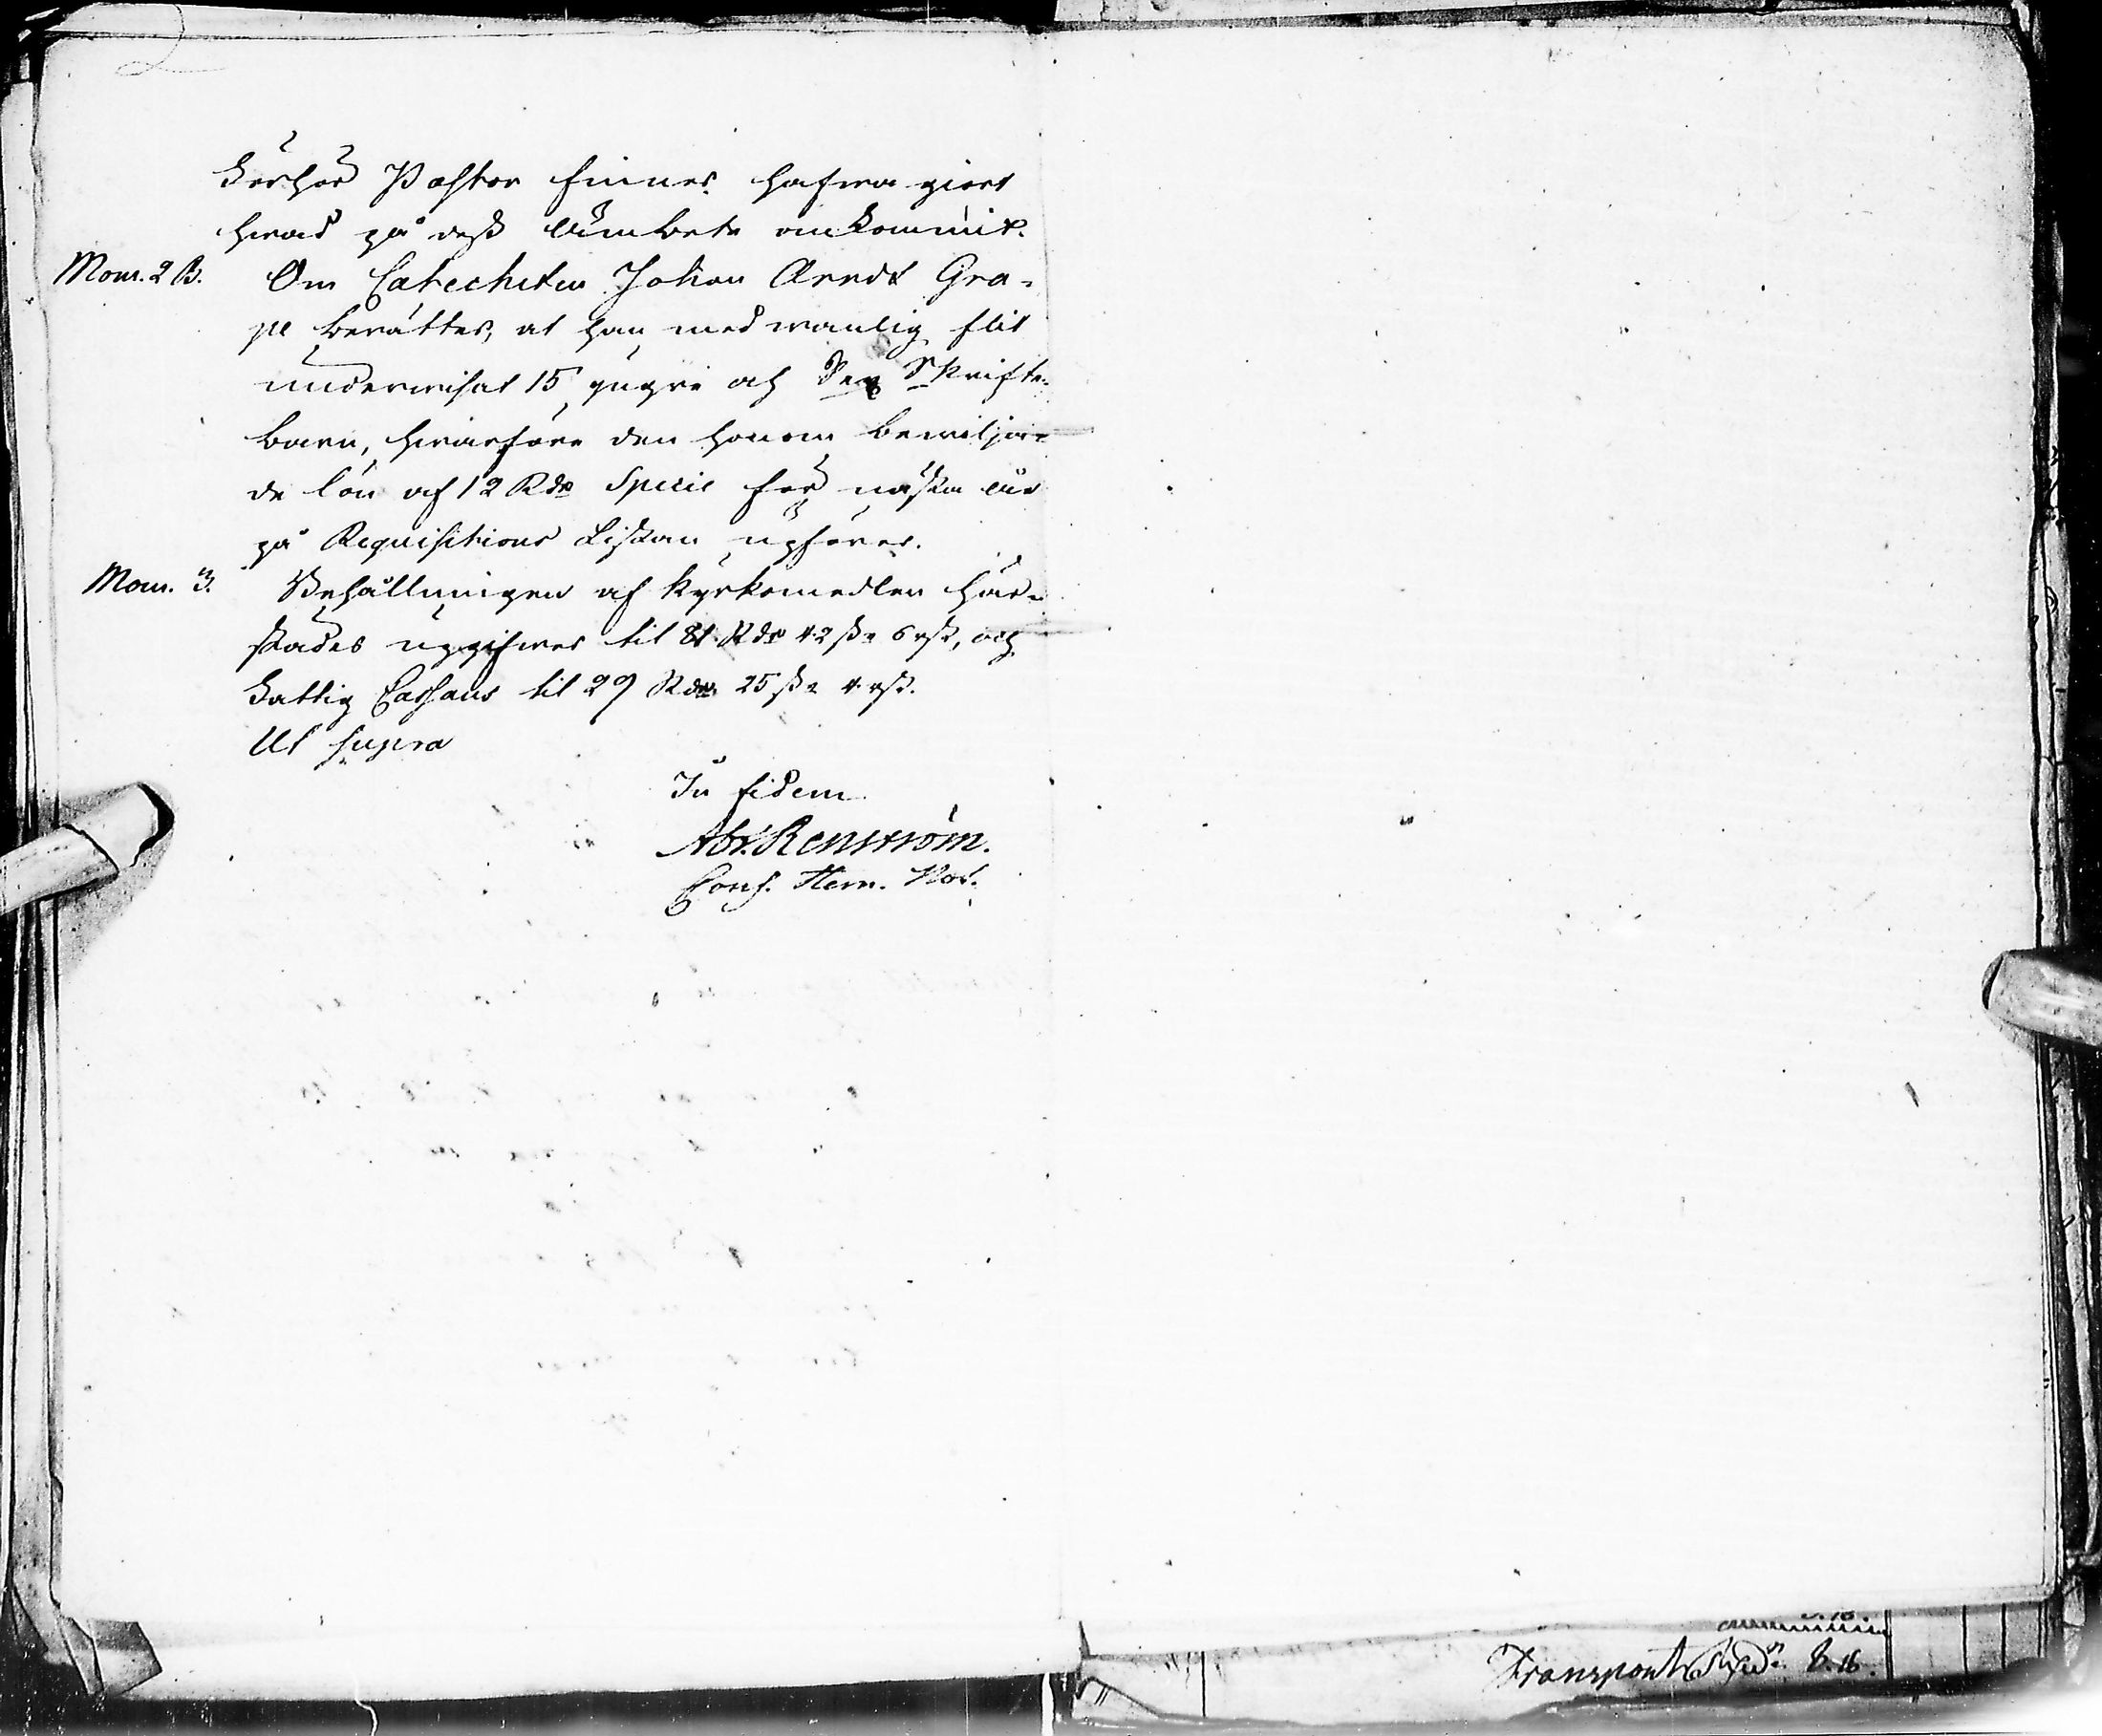 kärhör Pastor finnes hafwa giört
hwad på dess ämbete ankommit.
Mom. 2 B. Om Catecheten Johan Arndt Gra-
pe berättes, at han med wanlig flit
underwisat 15 yngre och Sex Skrifte-
barn, hwarföre den honom bewilja-
de lön af 12 Rdr Specie för nästa år
på Requisitions Listan upföres.
Mom. 3. Behållningen af Kyrkomedlen här-
städes uppgifwes til 81 Rdr 42 ss 6 rst, och
Fattig Cassans til 29 Rdr 25 ss 4 rst.
Ut supra
In fidem
Abr. Renström.
Cons. Hern. Not.
Transport Rd. 8.16.